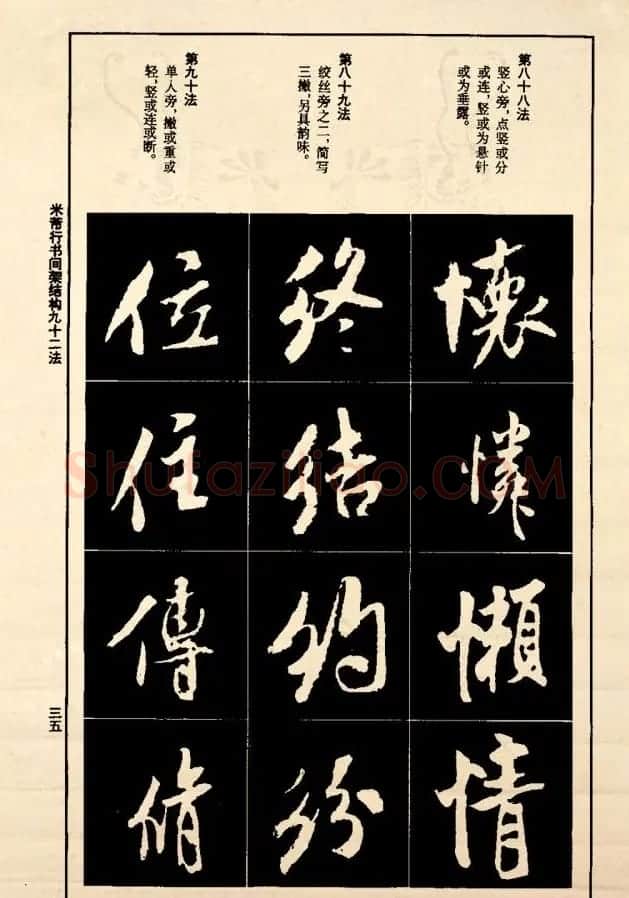 第八十八法
竖心旁，点竖或分
或连，竖或为悬针
或为垂露。
第八十九法
绞丝旁之二，简写
三撇，另具韵味。
第九十法
单人旁，撇或重或
轻，竖或连或断。
懷
憐
懶
情
終
結
約
紛
位
住
傳
脩
米芾行书间架结构九十二法
三五
Shufaziliao.COM